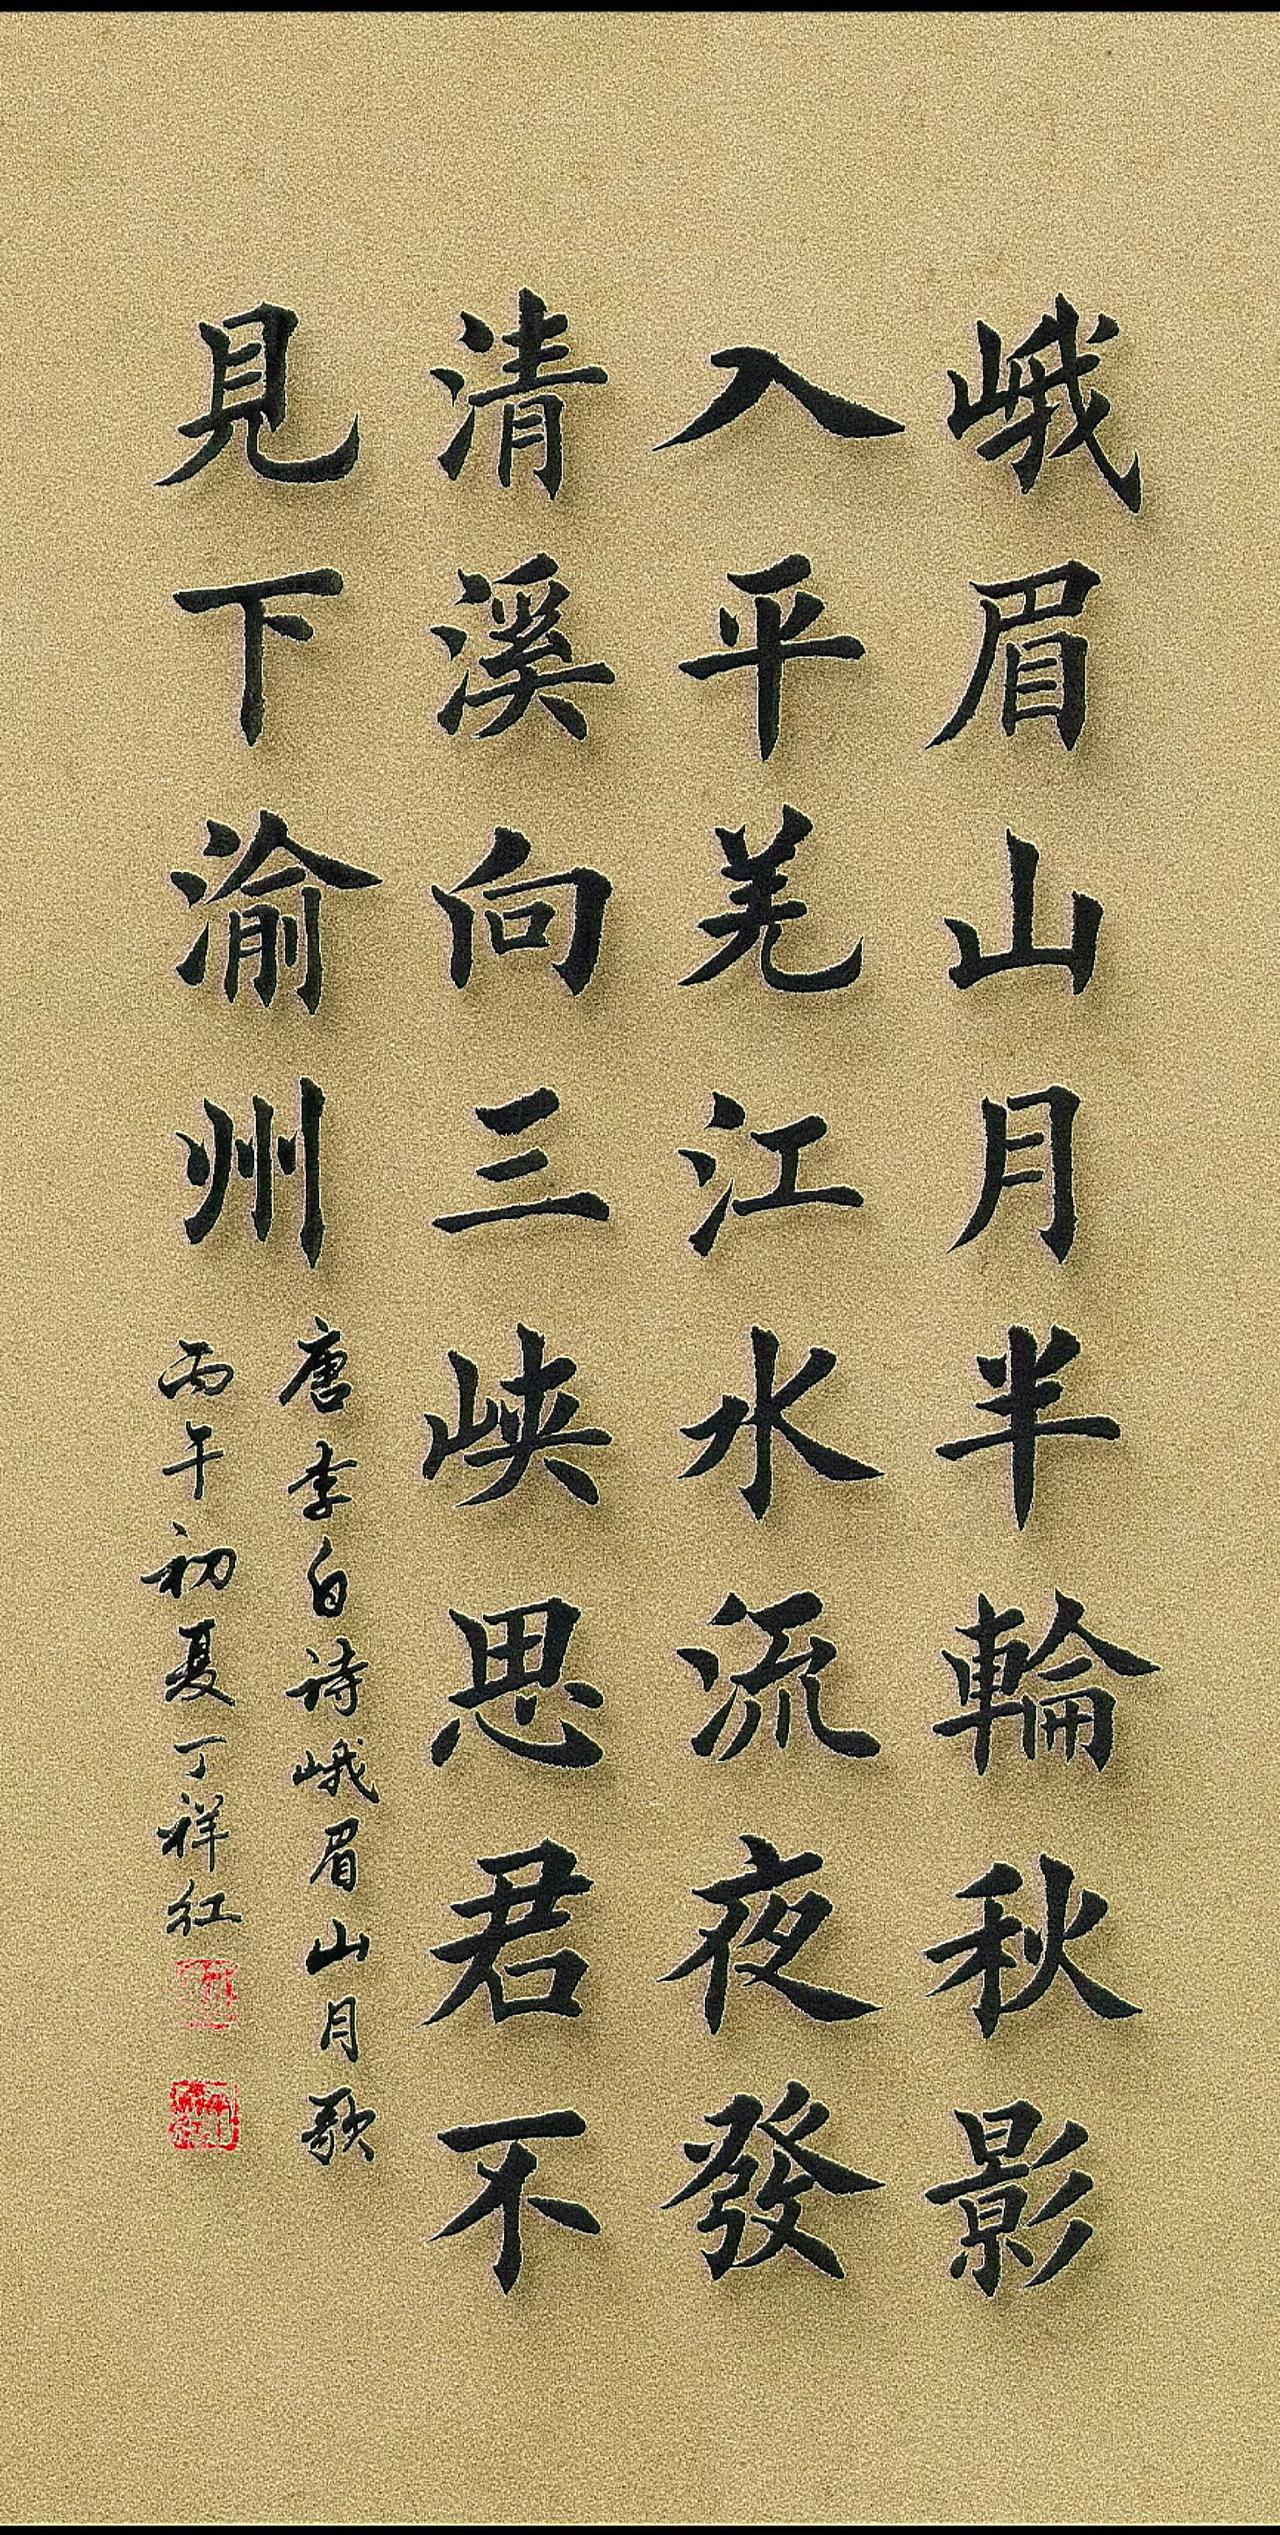 峨眉山月半輪秋影
入平羌江水流夜發
清溪向三峽思君不
見下渝州
唐李白诗峨眉山月歌
丙午初夏丁祥红